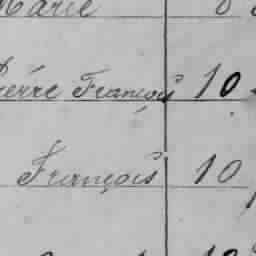 Marie 8
Pierre François 10
François 10